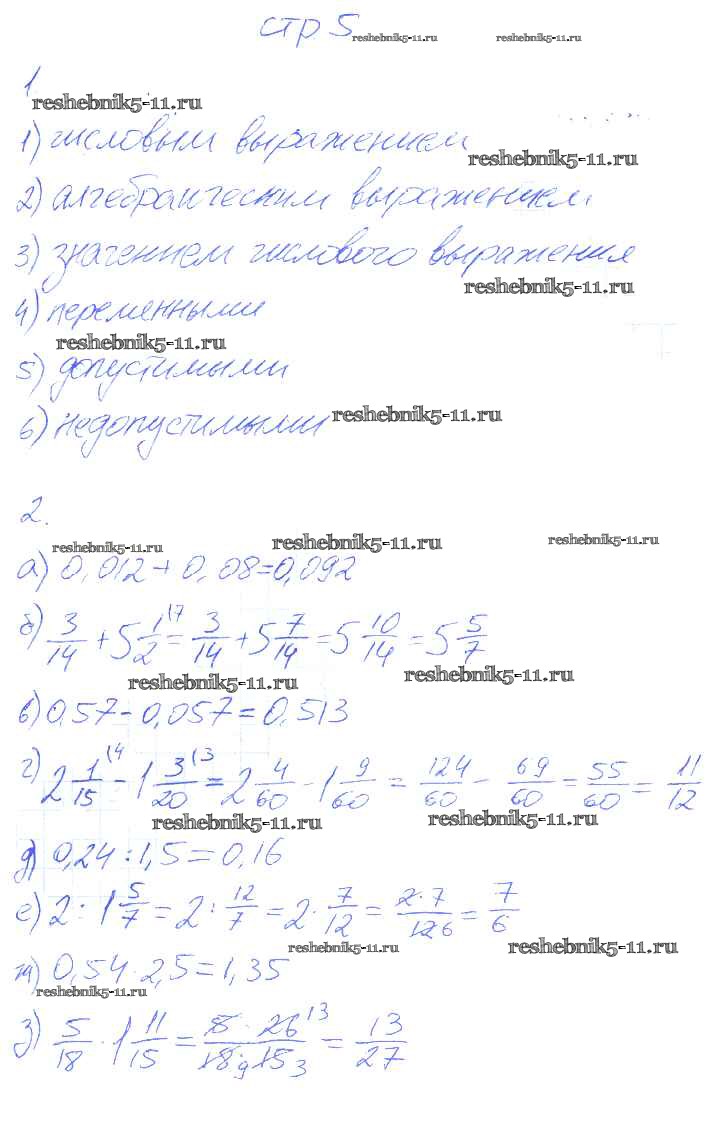 стр. 5 reshebnik5-11.ru reshebnik5-11.ru
1
reshebnik5-11.ru
1) числовым выражением
reshebnik5-11.ru
2) алгебраическим выражением
3) значением числового выражения
reshebnik5-11.ru
4) переменными
reshebnik5-11.ru
5) допустимыми
6) недопустимыми reshebnik5-11.ru
2.
reshebnik5-11.ru reshebnik5-11.ru reshebnik5-11.ru
а) 0,012 + 0,08 = 0,092
б) 3/14 + 5 1/2 (7 = 3/14 + 5 7/14 = 5 10/14 = 5 5/7
reshebnik5-11.ru reshebnik5-11.ru
в) 0,57 - 0,057 = 0,513
г) 2 1/15 (4 - 1 3/20 (3 = 2 4/60 - 1 9/60 = 124/60 - 69/60 = 55/60 = 11/12
reshebnik5-11.ru reshebnik5-11.ru
д) 0,24 : 1,5 = 0,16
е) 2 : 1 5/7 = 2 : 12/7 = 2 · 7/12 = 2·7/12 6 = 7/6
reshebnik5-11.ru reshebnik5-11.ru
ж) 0,54 · 2,5 = 1,35
reshebnik5-11.ru
з) 5/18 · 1 11/15 = 5 · 26 13/18 9 15 3 = 13/27